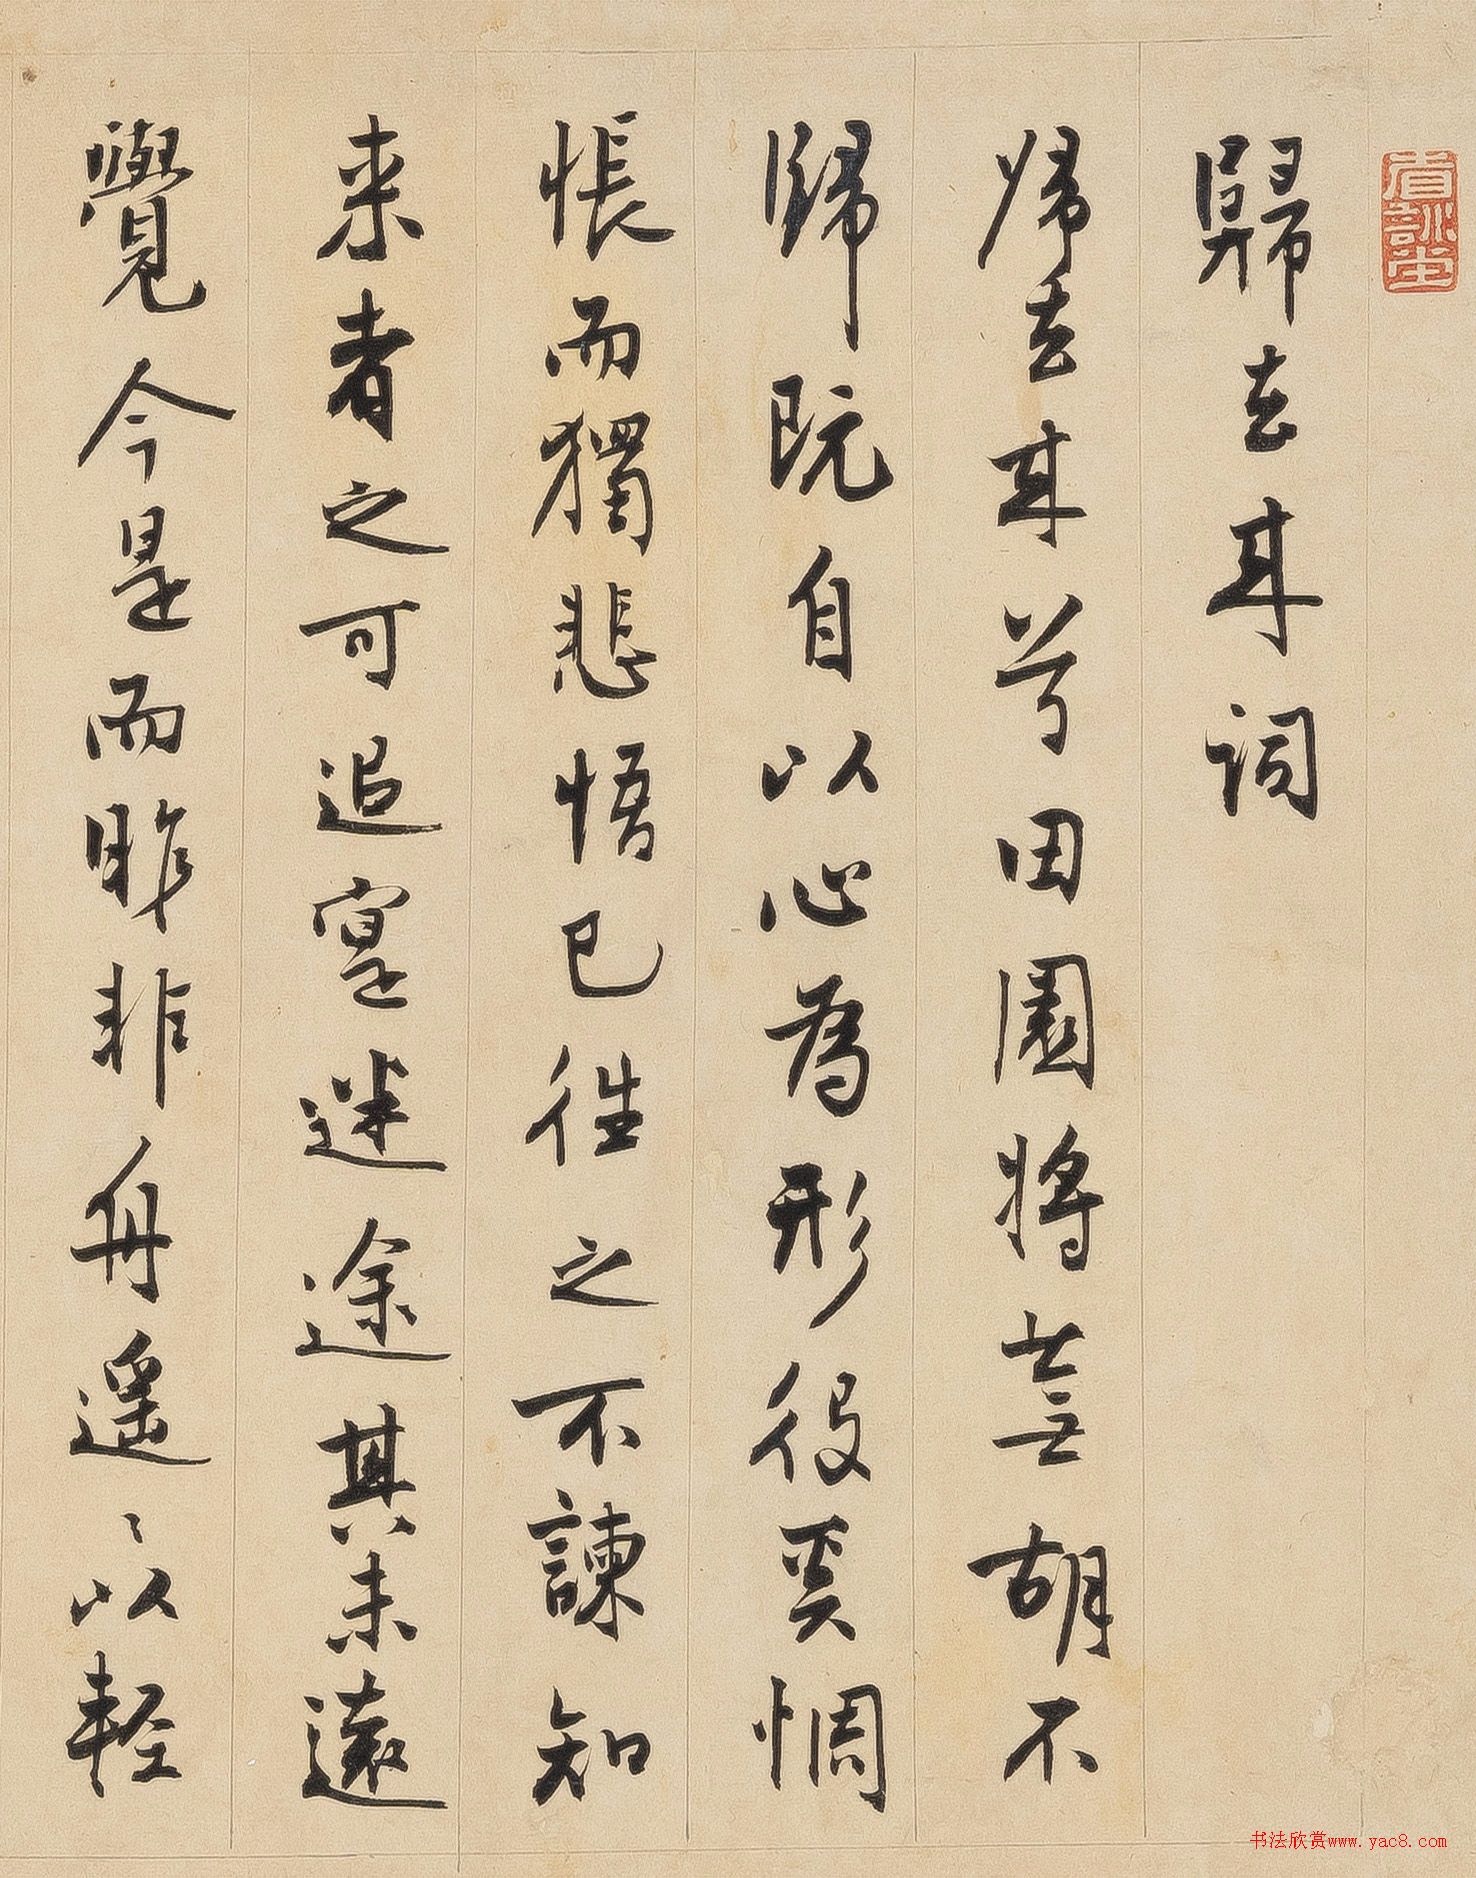 歸去来詞
歸去来兮田園將蕪胡不
歸既自以心為形役奚惆
悵而獨悲悟已往之不諫知
来者之可追寔迷途其未遠
覺今是而昨非舟遥〻以輕
书法欣赏www.yac8.com